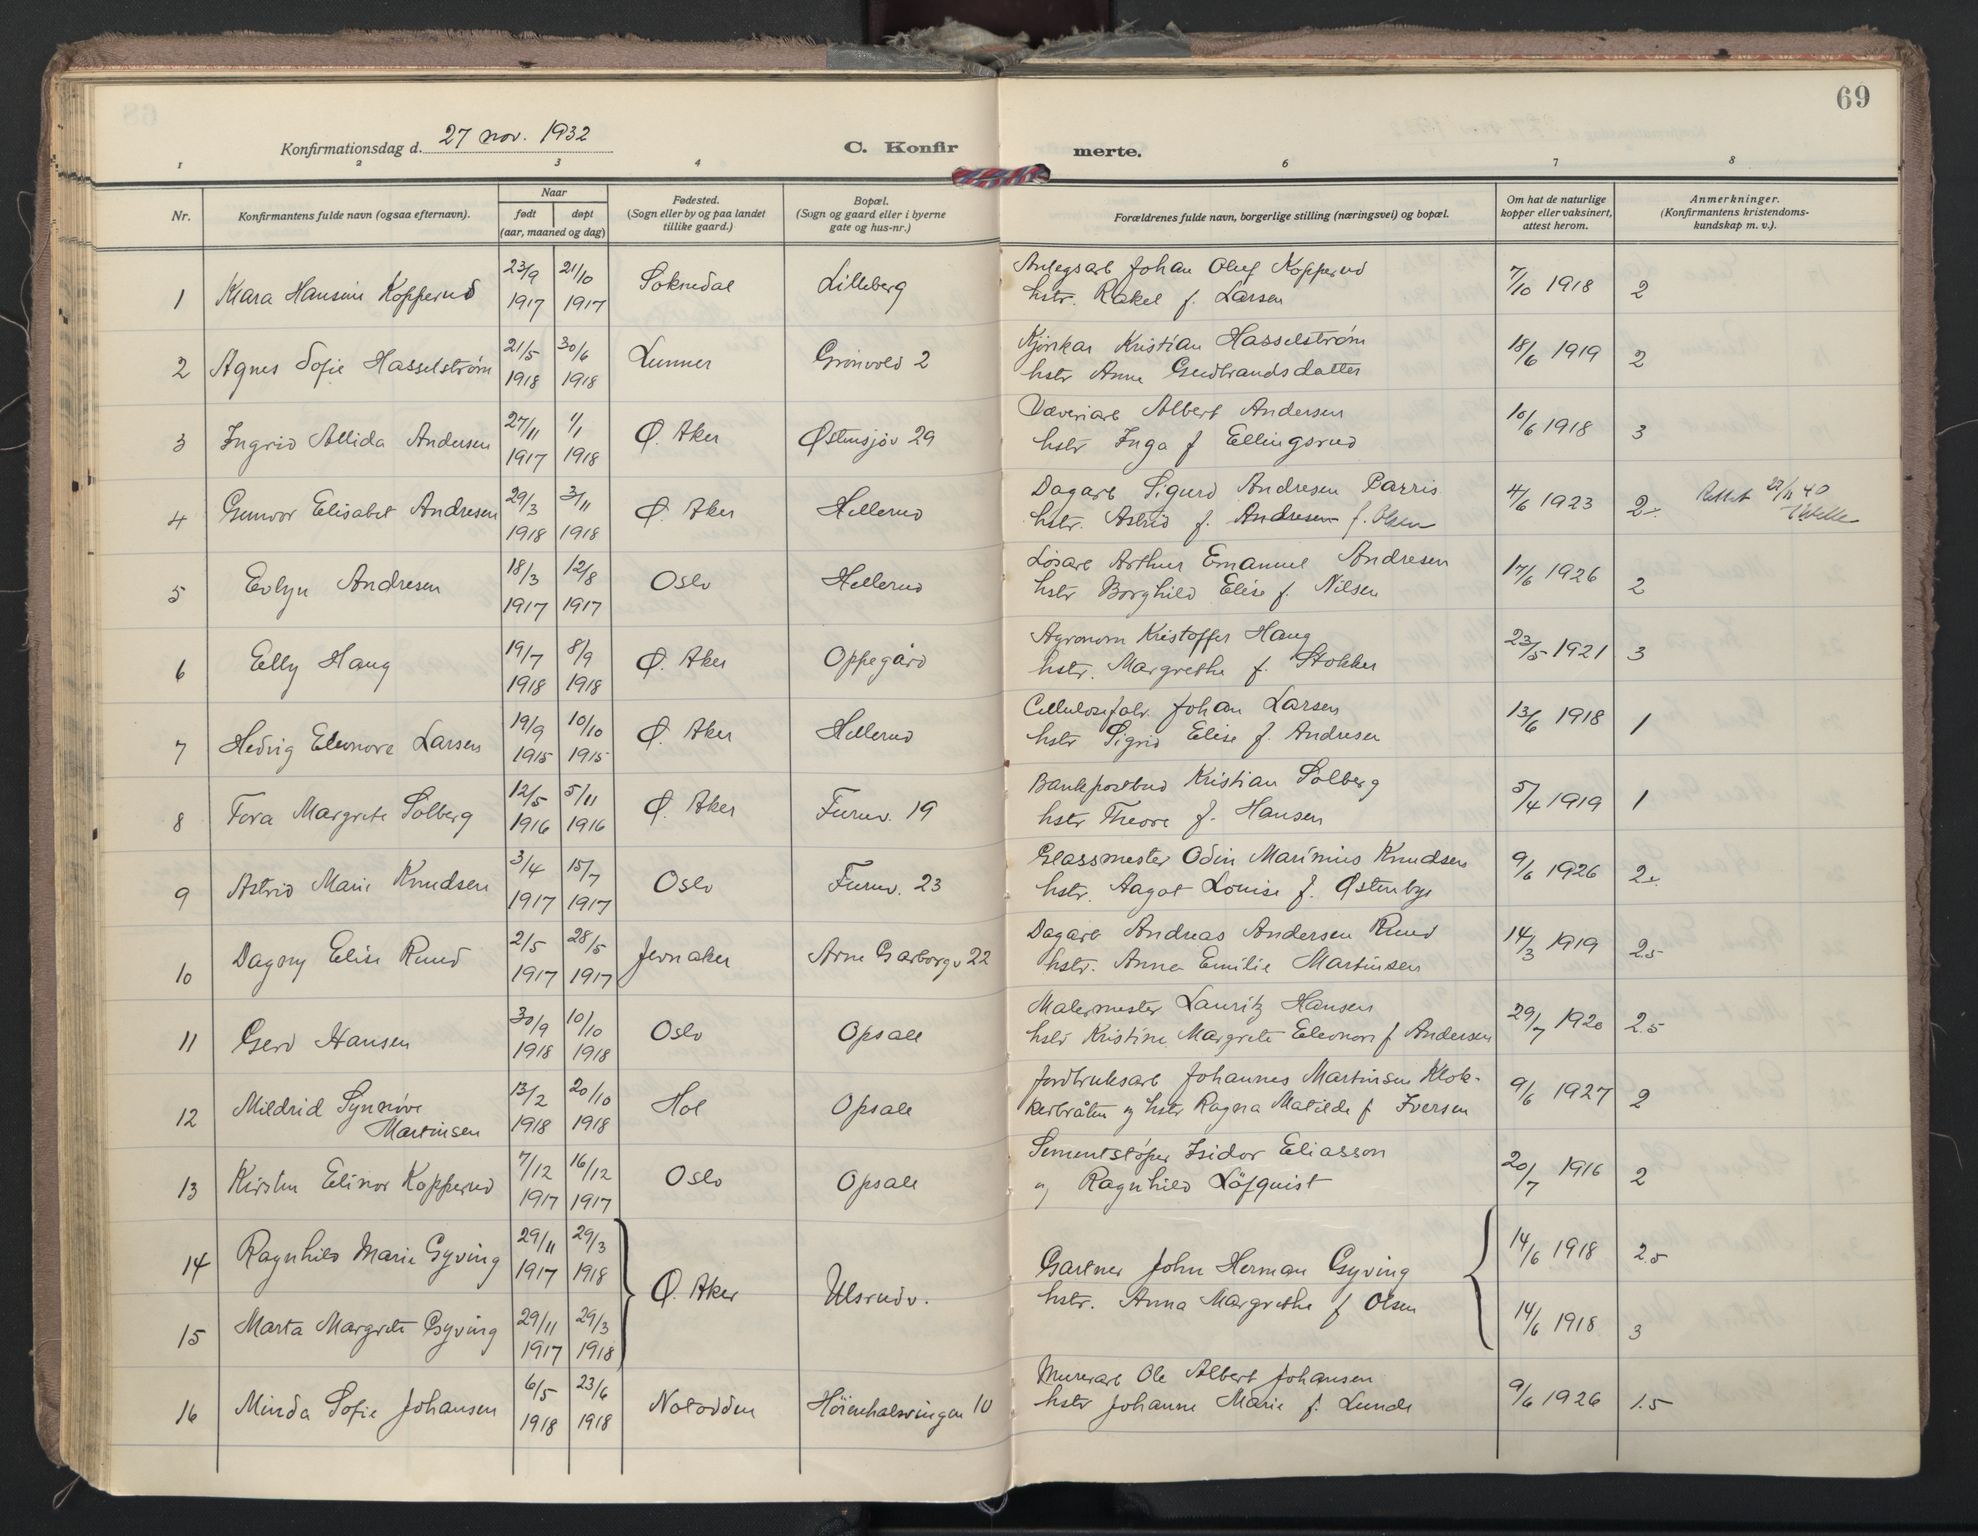 69
Konfirmationsdag d. 27 nov. 1932
C. Konfir merte.
1 2 3 4 5 6 7 8
Nr.
Konfirmantens fulde navn (ogsaa efternavn).
Naar
født døpt
(aar, maaned og dag)
Fødested.
(Sogn eller by og paa landet
tillike gaard.)
Bopæl.
(Sogn og gaard eller i byerne
gate og hus-nr.)
Forældrenes fulde navn, borgerlige stilling (næringsvei) og bopæl.
Om hat de naturlige
kopper eller vaksinert,
attest herom.
Anmerkninger.
(Konfirmantens kristendoms-
kundskap m. v.).
1 Klara Hansine Kopperud 23/9 1917 21/10 1917 Soknedal Lilleberg
Anlegsarb Johan Oluf Kopperud
hstr. Rakel f. Larsen
7/10 1918 2
2 Agnes Sofie Hasselstrøm 21/5 1918 30/6 1918 Lunner Grönvold 2
Kristian Hasselstrøm
hstr Anne Gudbrandsdatter
18/6 1919 2
3 Ingrid Allida Andersen 27/11 1917 1/1 1918 Ø. Aker Østensjøv 29
Væveriarb Albert Andersen
hstr Inga f Ellingsrud
10/6 1918 3
4 Gunvor Elisabet Andresen 29/3 1918 3/11 1918 Ø. Aker Hellerud
Dagarb Sigurd Andresen Parris
hstr. Astrid f. Andresen f. Olsen
4/6 1923 2÷ Rettet 22/11 40
5 Evlyn Andresen 18/3 1917 12/8 1917 Oslo Hellerud
Løsarb Arthur Emanuel Andresen
hstr Borghild Elise f. Nilsen
17/6 1926 2
6 Elly Haug 19/7 1918 8/9 1918 Ø. Aker Oppegård
Agronom Kristoffer Haug
hstr. Margrethe f. Stokker
23/5 1921 3
7 Hedvig Eleonore Larsen 19/9 1915 10/10 1915 Ø. Aker Hellerud
Cellulosefabr. Johan Larsen
hstr Sigrid Elise f. Andresen
13/6 1918 1
8 Tora Margrete Solberg 12/5 1916 5/11 1916 Ø. Aker Furuv. 19
Bankpostbud Kristian Solberg
hstr Theore f. Hansen
5/4 1919 1
9 Astrid Marie Knudsen 3/4 1917 15/7 1917 Oslo Furuv. 23
Glassmester Odin Marinius Knudsen
hstr. Aagot Louise f. Østenbye
9/6 1926 2÷
10 Dagny Elise Ruud 2/5 1917 28/5 1917 Jevnaker Arne Garborgv 22
Dagarb Andreas Andersen Ruud
hstr. Anna Emilie Martinsen
14/3 1919 2.5
11 Gerd Hansen 30/9 1918 10/10 1918 Oslo Opsall
Malermester Lauritz Hansen
hstr Kristine Margrete Eleonore f Andersen
29/7 1920 2.5
12 Mildrid Synnøve
Martinsen 13/2 1918 20/10 1918 Hol Opsall
Jordbruksarb Johannes Martinsen Klok-
kerbråten og hstr Ragna Matilde f Iversen
9/6 1927 2
13 Kirsten Elinor Kopperud 7/12 1917 16/12 1917 Oslo Opsall
Sementstöper Isidor Eliasson
og Ragnhild Löfquist
20/7 1916 2
14 Ragnhild Marie Gyving 29/11 1917 29/3 1918
14/6 1918 2.5
Ø. Aker Ulsrudv.
Gartner John Herman Gyving
hstr. Anna Margrethe f Olsen
15 Marta Margrete Gyving 29/11 1917 29/3 1918
14/6 1918 3
16 Minda Sofie Johansen 6/5 1918 23/6 1918 Notodden Höienhalsvingen 10
Murerarb Ole Albert Johansen
hstr Johanne Marie f. Lunde
9/6 1926 1.5